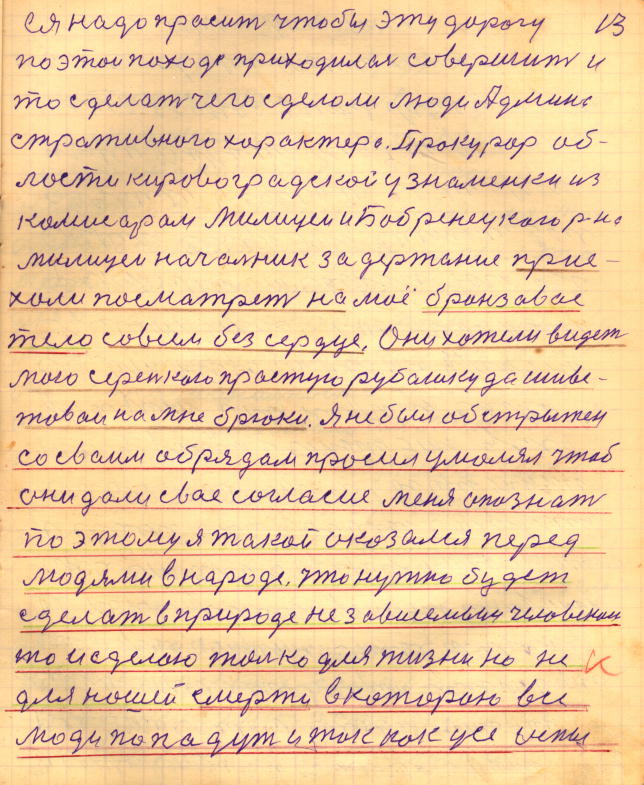 ся надо просит чтобы эту дорогу 13
по этои походе приходился совершит и
то сделат чего сделоли люди Админс
стративного характера. Прокурор об-
лости кировоградской у знаменки из
комисаром милицеи и Бобренецкого р-на
милицеи началник задержание прие-
холи посматрет на моё бронзавае
тело совсем без сердце. Они хотели видет
мого серепкого простую рубашку да шиве-
товаи на мне брюки. Я не был обстрыжен
со своим обрядам просил умолял чтоб
они дали свае согласие меня опознат
по этому я такой оказался перед
людями в народе. что нужно будет
сделат в природе независемым человеком
то и сделаю толко для жизни но не
для ношей смерти в котораю все
люди попадут и ток как усе